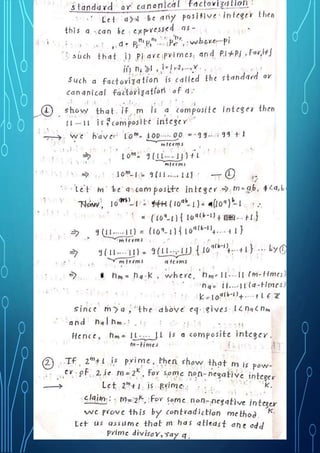 standard or canonical factorization :
Let a>1 be any positive integer then
this a can be expressed as -
a = p₁ⁿ¹ p₂ⁿ² ... pᵣⁿʳ, where pᵢ
such that i) pᵢ are primes, and pᵢ≠pⱼ, for i≠j
ii) nᵢ≥1, i=1,2,...,r
Such a factorization is called the standard or
canonical factorization of a.
① show that if m is a composite integer then
11---11 is a composite integer
→ we have 10ᵐ = 100.....00 = 99...99 + 1
m terms
⇒ 10ᵐ = 9(11....11)+1
m terms
⇒ 10ᵐ-1 = 9(11.....11) — ①
Let m be a composite integer ⇒ m=ab,
Now, 10ᵐ-1 = (10ᵃᵇ-1) = (10ᵃ)ᵇ-1
= (10ᵃ-1){10ᵃ⁽ᵇ⁻¹⁾+ ...+1}
⇒ 9(11......11) = (10ᵃ-1){10ᵃ⁽ᵇ⁻¹⁾+...+1}
m terms
⇒ 9(11.....11) = 9(11....11){10ᵃ⁽ᵇ⁻¹⁾+...+1} ... by ①
m terms a terms
⇒ nₘ = nₐ·k, where, nₘ = 11...11 (m-times)
nₐ = 11...11 (a-times)
k=10ᵃ⁽ᵇ⁻¹⁾+...+1 ∈ Z
since m>a, the above eq. gives 1<nₐ<nₘ
and nₐ|nₘ.
Hence, nₘ = 11......11 is a composite integer.
m-times
② IF 2ᵐ+1 is prime, then show that m is pow-
er of 2 ie m=2ᵏ, for some non-negative integer
k.
→ Let 2ᵐ+1 is prime
claim: m=2ᵏ, for some non-negative integer
k.
we prove this by contradiction method.
Let us assume that m has atleast one odd
prime divisor, say q.